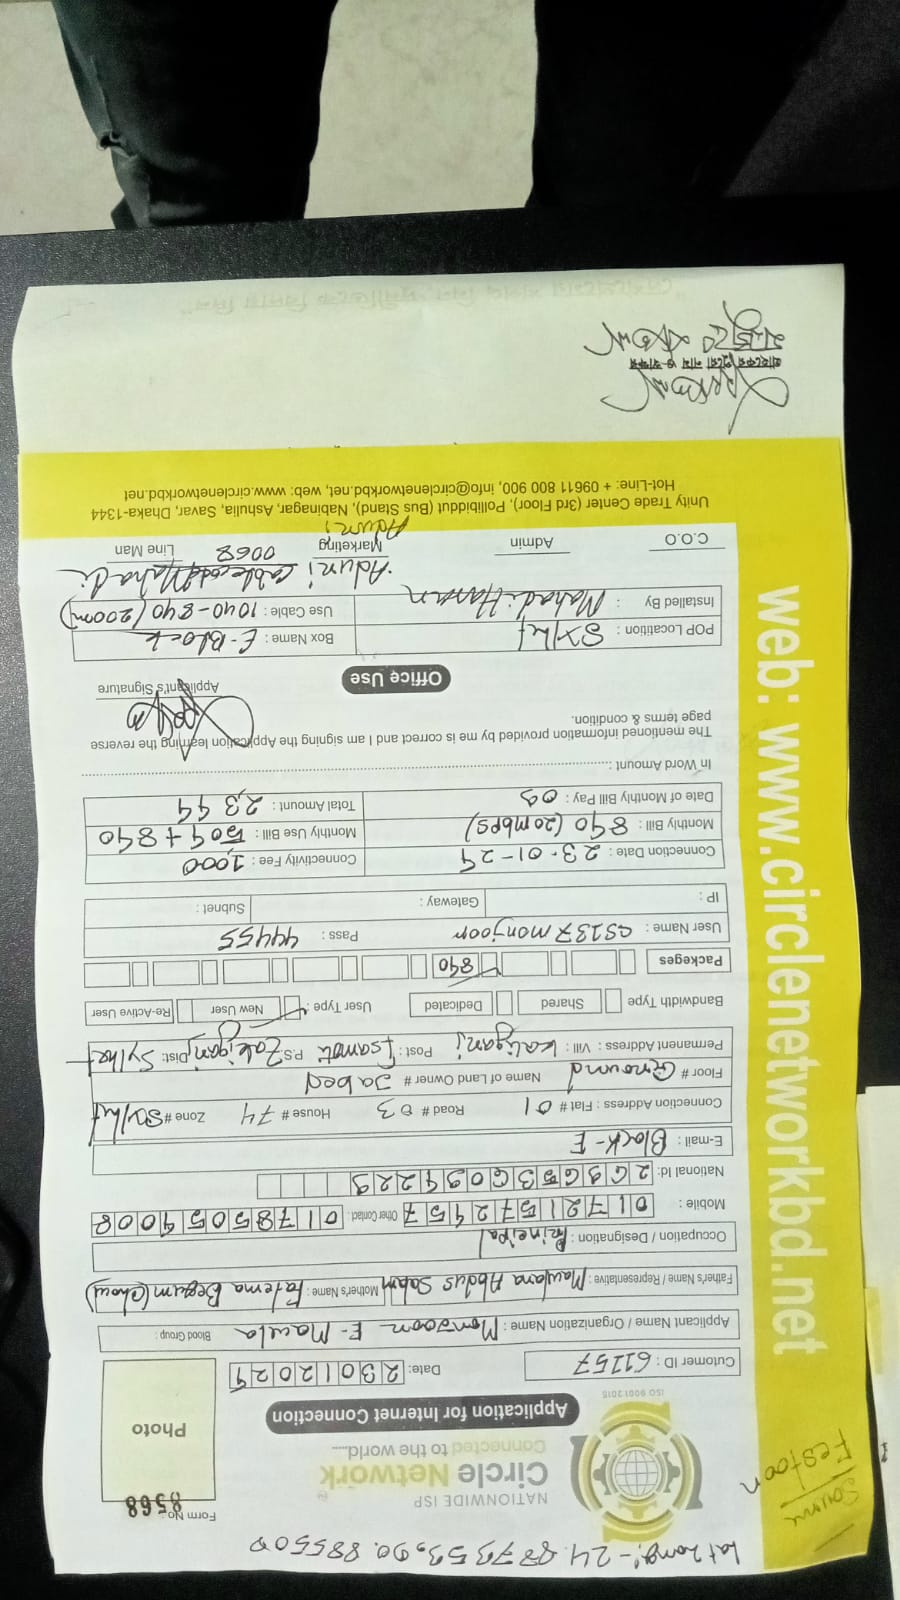 Lat Long:- 24.887353, 90.885500
Source
Festoon
NATIONWIDE ISP
Circle Network
Connected to the world.....
ISO 9001:2015
Form No. 8568
Photo
Application for Internet Connection
Cutomer ID : 61157
Date: 23012024
Applicant Name / Organization Name : Monjoon E- Maula Blood Group :
Father's Name / Representative : Maulana Abdus Salam Mother's Name : Fatema Begum (Chow)
Occupation / Designation : Principal
Mobile : 01721572457 Other Contact : 01785054008
National Id: 2693653603942 23
E-mail : Block-E
Connection Address : Flat # 01 Road # 03 House # 74 Zone # Sylhet
Floor # Ground Name of Land Owner # Jabed
Permanent Address : Vill : Kaliganj Post : Isamoti P.S Zakiganj Dist: Sylhet
Bandwidth Type Shared Dedicated User Type : New User Re-Active User
Packeges 840
User Name : cs137monjoor Pass : 44455
IP : Gateway : Subnet :
Connection Date : 23-01-24 Connectivity Fee : 1,000
Monthly Bill : 840 (20mbps) Monthly Use Bill : 504+840
Date of Monthly Bill Pay : 05 Total Amount : 2,344
In Word Amount :
The mentioned information provided by me is correct and I am signing the Application learning the reverse
page terms & condition.
Applicant's Signature
Office Use
POP Locatiation : Sylhet Box Name : E-Block
Installed By : Mahadi Hasan Use Cable : 1040-840 (200m)
Aduri Mahadi
0068
C.O.O Admin Marketing Line Man
Aduri
Unity Trade Center (3rd Floor), Pollibiddut (Bus Stand), Nabinagar, Ashulia, Savar, Dhaka-1344
Hot-Line: + 09611 800 900, info@circlenetworkbd.net, web: www.circlenetworkbd.net
web: www.circlenetworkbd.net
গ্রাহকের পুরো নাম ও স্বাক্ষর